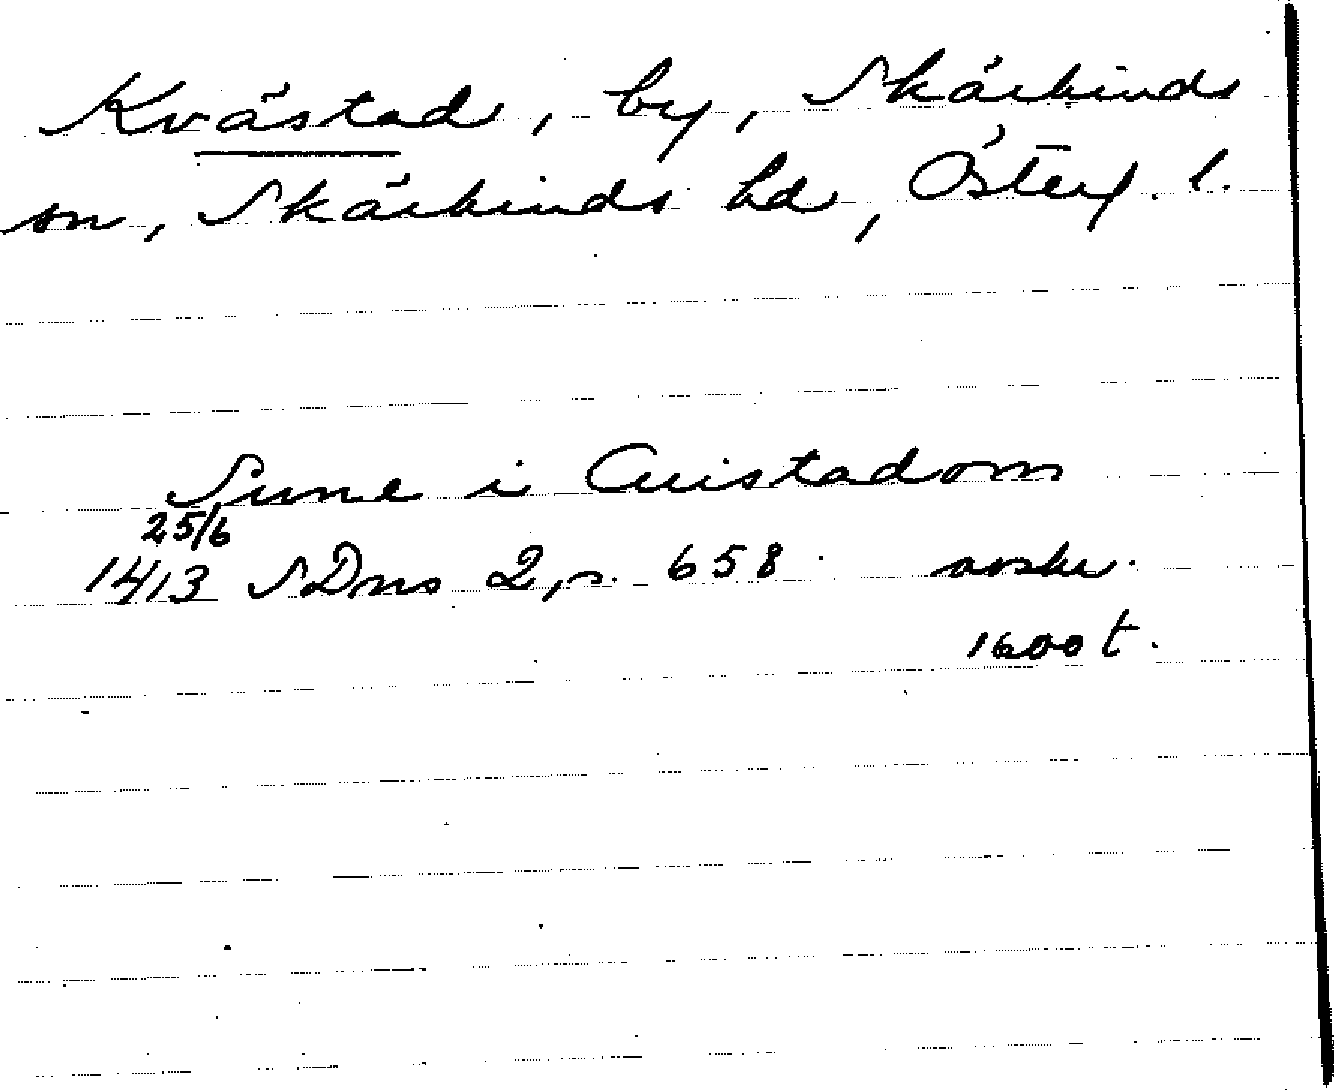 Kvästad, by, Skärkinds
sn, Skärkinds hd, Österg. l.
Sune i Cuistadom
25/6
1413 SDns 2, s. 658. avskr.
1600 t.